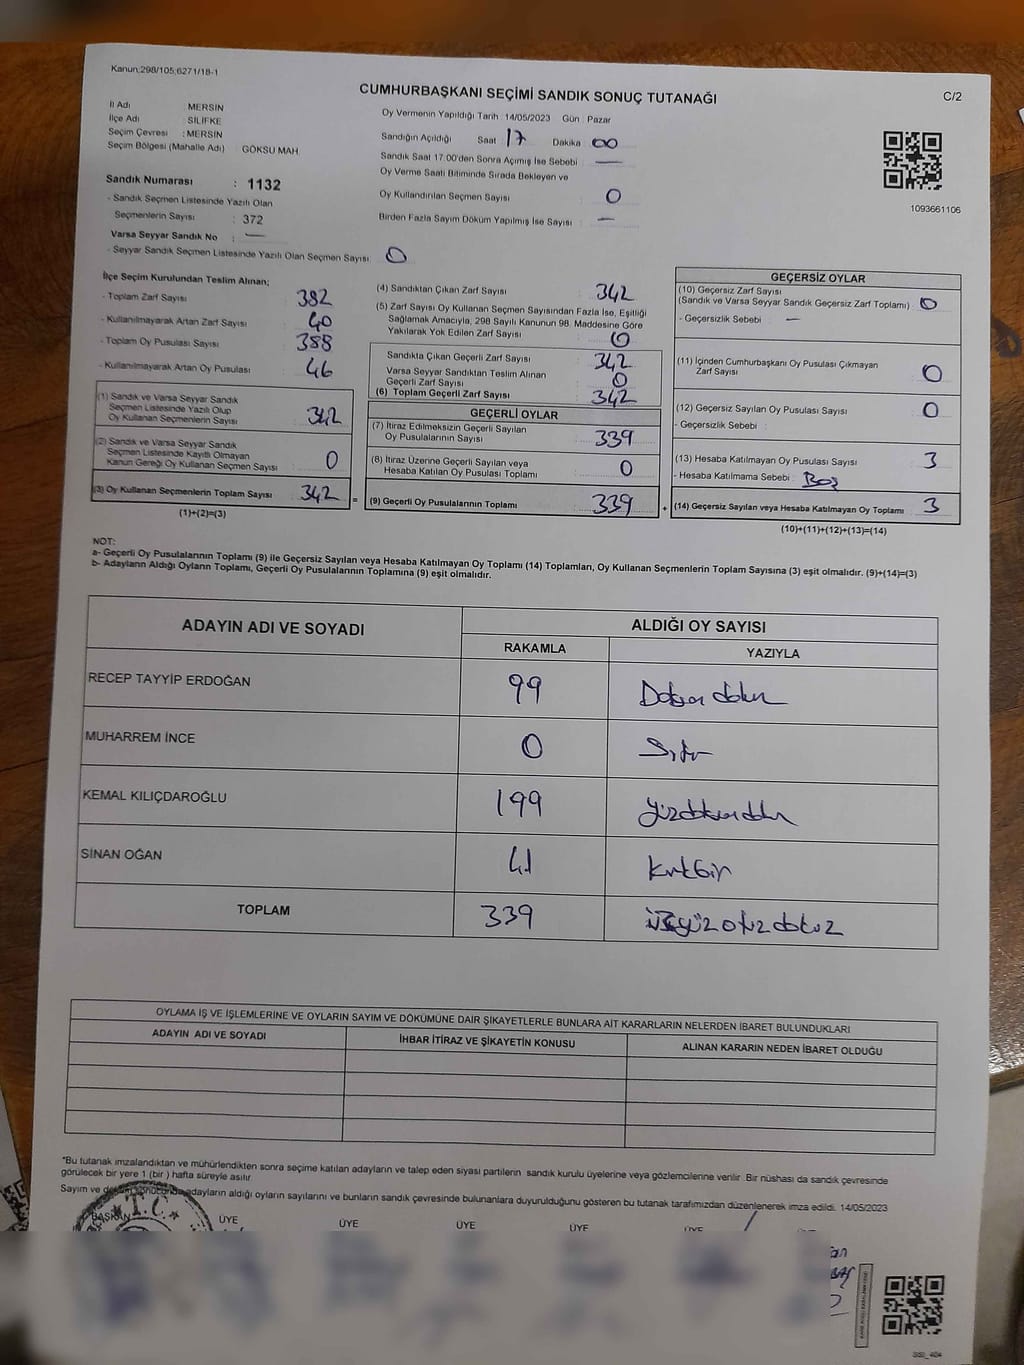 Kanun;298/105;6271/18-1
CUMHURBAŞKANI SEÇİMİ SANDIK SONUÇ TUTANAĞI
C/2
İl Adı : MERSİN
İlçe Adı : SİLİFKE
Seçim Çevresi : MERSİN
Seçim Bölgesi (Mahalle Adı) GÖKSU MAH.
Sandık Numarası : 1132
- Sandık Seçmen Listesinde Yazılı Olan
Seçmenlerin Sayısı : 372
Varsa Seyyar Sandık No : —
- Seyyar Sandık Seçmen Listesinde Yazılı Olan Seçmen Sayısı 0
Oy Vermenin Yapıldığı Tarih : 14/05/2023 Gün : Pazar
Sandığın Açıldığı Saat 17 Dakika 00
Sandık Saat 17:00'den Sonra Açılmış İse Sebebi : —
Oy Verme Saati Bitiminde Sırada Bekleyen ve
Oy Kullandırılan Seçmen Sayısı : 0
Birden Fazla Sayım Döküm Yapılmış İse Sayısı : —
1093661106
İlçe Seçim Kurulundan Teslim Alınan;
- Toplam Zarf Sayısı : 382
- Kullanılmayarak Artan Zarf Sayısı : 40
- Toplam Oy Pusulası Sayısı : 388
- Kullanılmayarak Artan Oy Pusulası : 46
(1) Sandık ve Varsa Seyyar Sandık
Seçmen Listesinde Yazılı Olup
Oy Kullanan Seçmenlerin Sayısı : 342
(2) Sandık ve Varsa Seyyar Sandık
Seçmen Listesinde Kayıtlı Olmayan
Kanun Gereği Oy Kullanan Seçmen Sayısı : 0
(3) Oy Kullanan Seçmenlerin Toplam Sayısı : 342
(1)+(2)=(3)
(4) Sandıktan Çıkan Zarf Sayısı : 342
(5) Zarf Sayısı Oy Kullanan Seçmen Sayısından Fazla İse, Eşitliği
Sağlamak Amacıyla, 298 Sayılı Kanunun 98. Maddesine Göre
Yakılarak Yok Edilen Zarf Sayısı : 0
Sandıkta Çıkan Geçerli Zarf Sayısı : 342
Varsa Seyyar Sandıktan Teslim Alınan
Geçerli Zarf Sayısı : 0
(6) Toplam Geçerli Zarf Sayısı : 342
GEÇERLİ OYLAR
(7) İtiraz Edilmeksizin Geçerli Sayılan
Oy Pusulalarının Sayısı : 339
(8) İtiraz Üzerine Geçerli Sayılan veya
Hesaba Katılan Oy Pusulası Toplamı : 0
(9) Geçerli Oy Pusulalarının Toplamı : 339
GEÇERSİZ OYLAR
(10) Geçersiz Zarf Sayısı
(Sandık ve Varsa Seyyar Sandık Geçersiz Zarf Toplamı) : 0
- Geçersizlik Sebebi : —
(11) İçinden Cumhurbaşkanı Oy Pusulası Çıkmayan
Zarf Sayısı : 0
(12) Geçersiz Sayılan Oy Pusulası Sayısı : 0
- Geçersizlik Sebebi :
(13) Hesaba Katılmayan Oy Pusulası Sayısı : 3
- Hesaba Katılmama Sebebi : Boş
(14) Geçersiz Sayılan veya Hesaba Katılmayan Oy Toplamı : 3
(10)+(11)+(12)+(13)=(14)
NOT:
a- Geçerli Oy Pusulalarının Toplamı (9) ile Geçersiz Sayılan veya Hesaba Katılmayan Oy Toplamı (14) Toplamları, Oy Kullanan Seçmenlerin Toplam Sayısına (3) eşit olmalıdır. (9)+(14)=(3)
b- Adayların Aldığı Oyların Toplamı, Geçerli Oy Pusulalarının Toplamına (9) eşit olmalıdır.
ADAYIN ADI VE SOYADI
ALDIĞI OY SAYISI
RAKAMLA YAZIYLA
RECEP TAYYİP ERDOĞAN 99 Doksan dokuz
MUHARREM İNCE 0 Sıfır
KEMAL KILIÇDAROĞLU 199 yüzdoksandokuz
SİNAN OĞAN 41 Kırkbir
TOPLAM 339 üçyüz otuz dokuz
OYLAMA İŞ VE İŞLEMLERİNE VE OYLARIN SAYIM VE DÖKÜMÜNE DAİR ŞİKAYETLERLE BUNLARA AİT KARARLARIN NELERDEN İBARET BULUNDUKLARI
ADAYIN ADI VE SOYADI İHBAR İTİRAZ VE ŞİKAYETİN KONUSU ALINAN KARARIN NEDEN İBARET OLDUĞU
*Bu tutanak imzalandıktan ve mühürlendikten sonra seçime katılan adayların ve talep eden siyasi partilerin sandık kurulu üyelerine veya gözlemcilerine verilir. Bir nüshası da sandık çevresinde
görülecek bir yere 1 (bir ) hafta süreyle asılır.
Sayım ve döküm sonucunda adayların aldığı oyların sayılarını ve bunların sandık çevresinde bulunanlara duyurulduğunu gösteren bu tutanak tarafımızdan düzenlenerek imza edildi. 14/05/2023
BAŞKAN ÜYE ÜYE ÜYE ÜYE ÜYE
T.C.